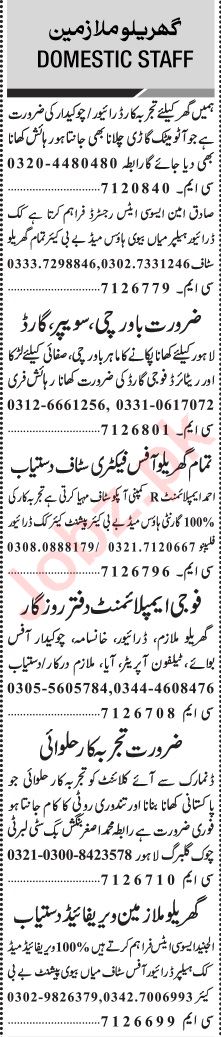 گھریلو ملازمین
DOMESTIC STAFF
ہمیں گھر کیلئے تجربہ کار ڈرائیور/چوکیدار کی ضرورت
ہے جو آٹومیٹک گاڑی چلانا بھی جانتا ہو رہائش کھانا
بھی دیا جائے گا رابطہ 0320-4480480
سی ایم۔ 7120840
صادق امین ایسوسی ایٹس رجسٹرڈ فراہم کرتا ہے کک
ڈرائیور ہیلپر میاں بیوی ہاؤس میڈ بے بی کیئر تمام گھریلو
سٹاف 0333.7298846,0302.7331246
سی ایم۔ 7126779
ضرورت باورچی، سویپر، گارڈ
لاہور کیلئے کھانا پکانے کا ماہر باورچی، صفائی کیلئے لڑکا
اور ریٹائرڈ فوجی گارڈ کی ضرورت کھانا رہائش فری
0312-6661256, 0331-0617072
سی ایم۔ 7126801
تمام گھریلو آفس فیکٹری سٹاف دستیاب
احمد ایمپلائمنٹ R کمپنی آپکو سٹاف مہیا کرتی ہے تجربہ کار کی
100% گارنٹی ہاؤس میڈ بے بی کیئر پیشنٹ کیئر کک ڈرائیور
فلپینو 0308.0888179/ 0321.7120667
سی ایم۔ 7126796
فوجی ایمپلائمنٹ دفتر روزگار
گھریلو ملازم، ڈرائیور، خانسامہ، چوکیدار آفس
بوائے، ٹیلفون آپریٹر، آیا، ملازم درکار/دستیاب
0305-5605784,0344-4608476
سی ایم 7126708
ضرورت تجربہ کار حلوائی
ڈنمارک سے آئے کلائنٹ کو تجربہ کار حلوائی جو
پاکستانی کھانا بنانا اور تندوری روٹی کا کام جانتا ہو
فوری ضرورت ہے رابطہ محمد اصغر بنگش بگ سٹی لبرٹی
چوک گلبرگ لاہور 0321-0300-8423578
سی ایم 7126710
گھریلو ملازمین ویریفائیڈ دستیاب
الجنید ایسوسی ایٹس فراہم کرتے ہیں 100% ویریفائیڈ میڈ
کک ہیلپر ڈرائیور آفس سٹاف میاں بیوی پیشنٹ بے بی
کیئر 0302-9826379,0342.7006993
سی ایم 7126699
Jobz.pk